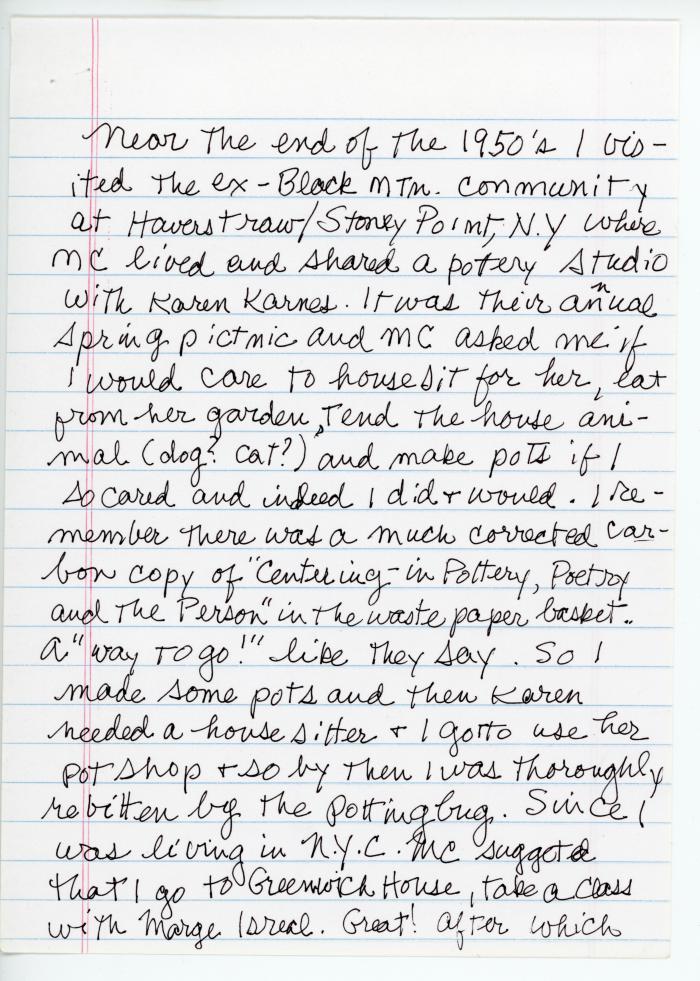 Near the end of the 1950's I vis-
ited the ex-Black Mtn. community
at Haverstraw/Stoney Point, N.Y where
MC lived and shared a pottery studio
with Karen Karnes. It was their annual
spring pictnic and MC asked me if
I would care to house sit for her, eat
from her garden, tend the house ani-
mal (dog? cat?) and make pots if I
so cared and indeed I did + would. I re-
member there was a much corrected car-
bon copy of "Centering-in Pottery, Poetry
and the Person" in the waste paper basket..
A "way to go!" like they say. So I
made some pots and then Karen
needed a house sitter + I got to use her
pot shop + so by then I was thoroughly
rebitten by the potting bug. Since I
was living in N.Y.C. MC suggested
that I go to Greenwich House, take a class
with Marge Isreal. Great! After which